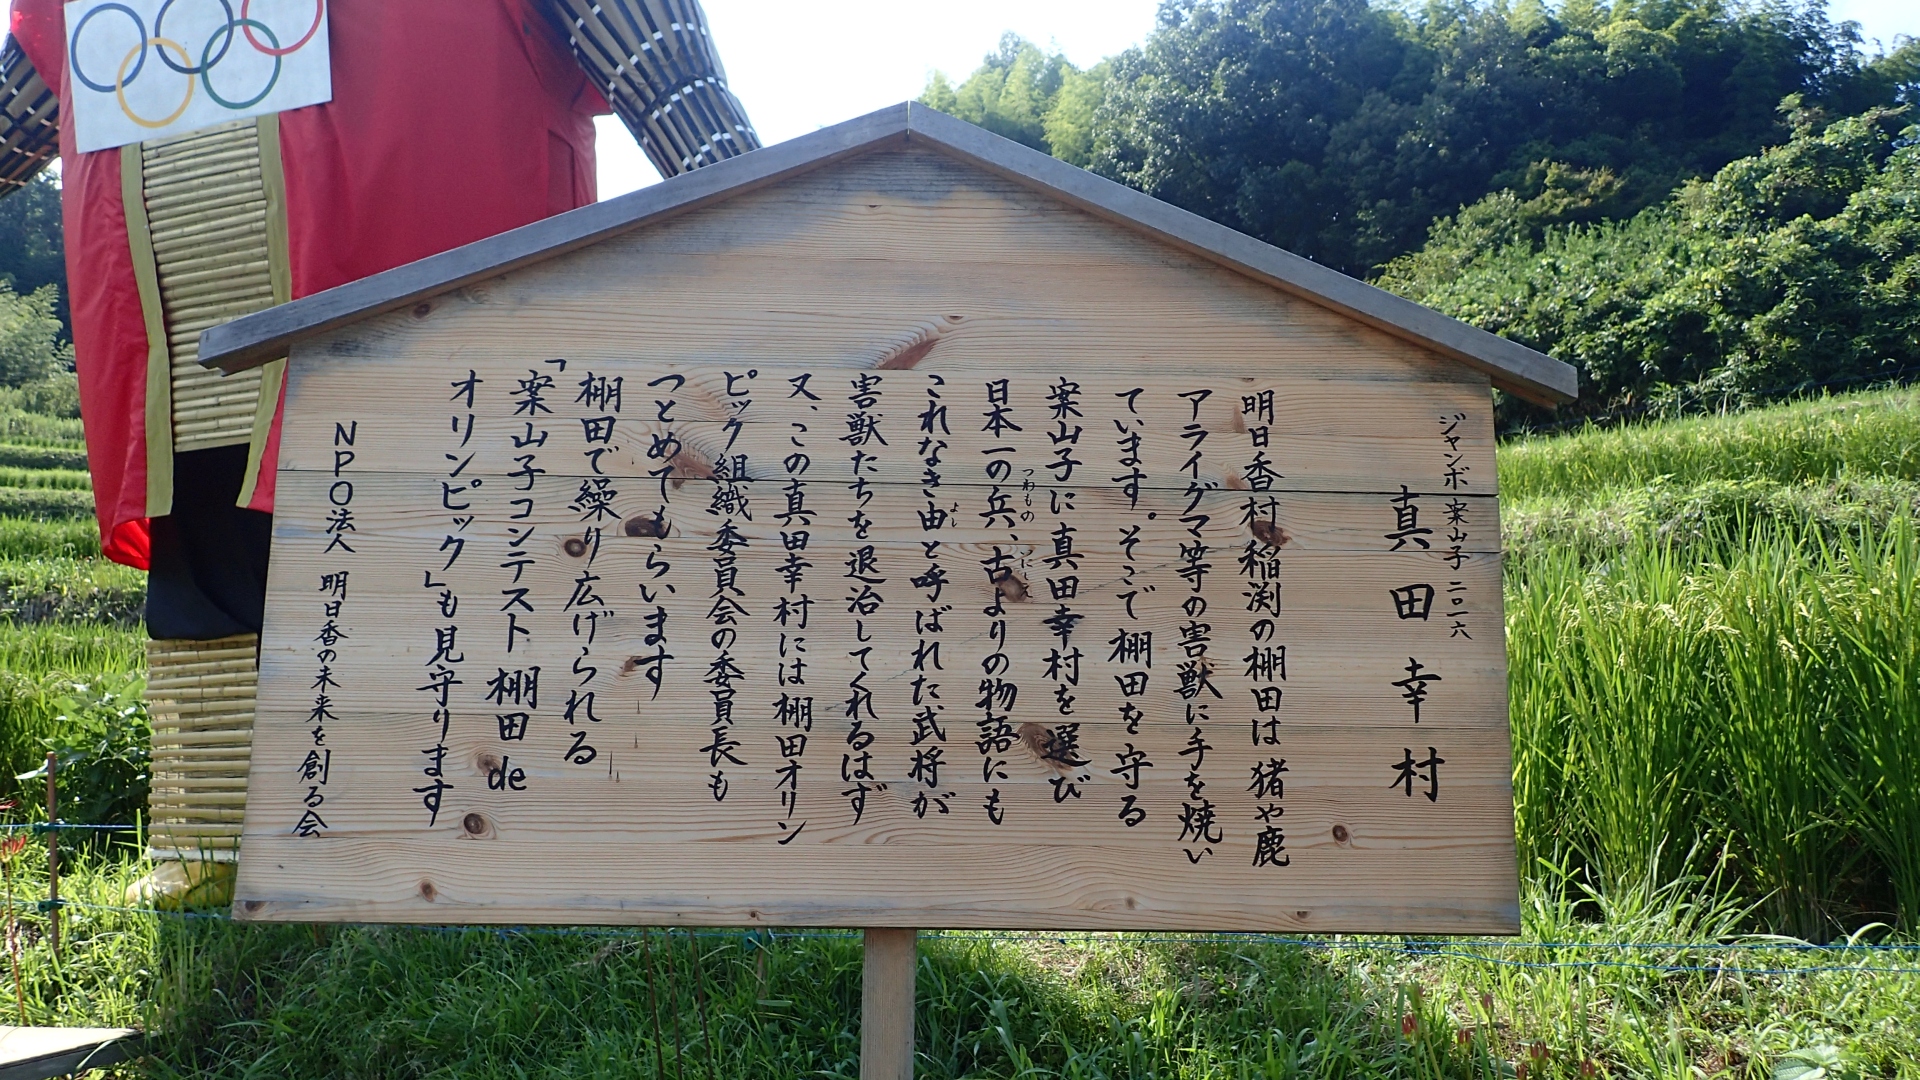 ジャンボ案山子 二〇一六
真田幸村
明日香村稲渕の棚田は猪や鹿
アライグマ等の害獣に手を焼い
ています。そこで棚田を守る
案山子に真田幸村を選び
日本一の兵、古よりの物語にも
つわもの
いにしえ
これなき由と呼ばれた武将が
よし
害獣たちを退治してくれるはず
又、この真田幸村には棚田オリン
ピック組織委員会の委員長も
つとめてもらいます
棚田で繰り広げられる
「案山子コンテスト 棚田de
オリンピック」も見守ります
NPO法人 明日香の未来を創る会